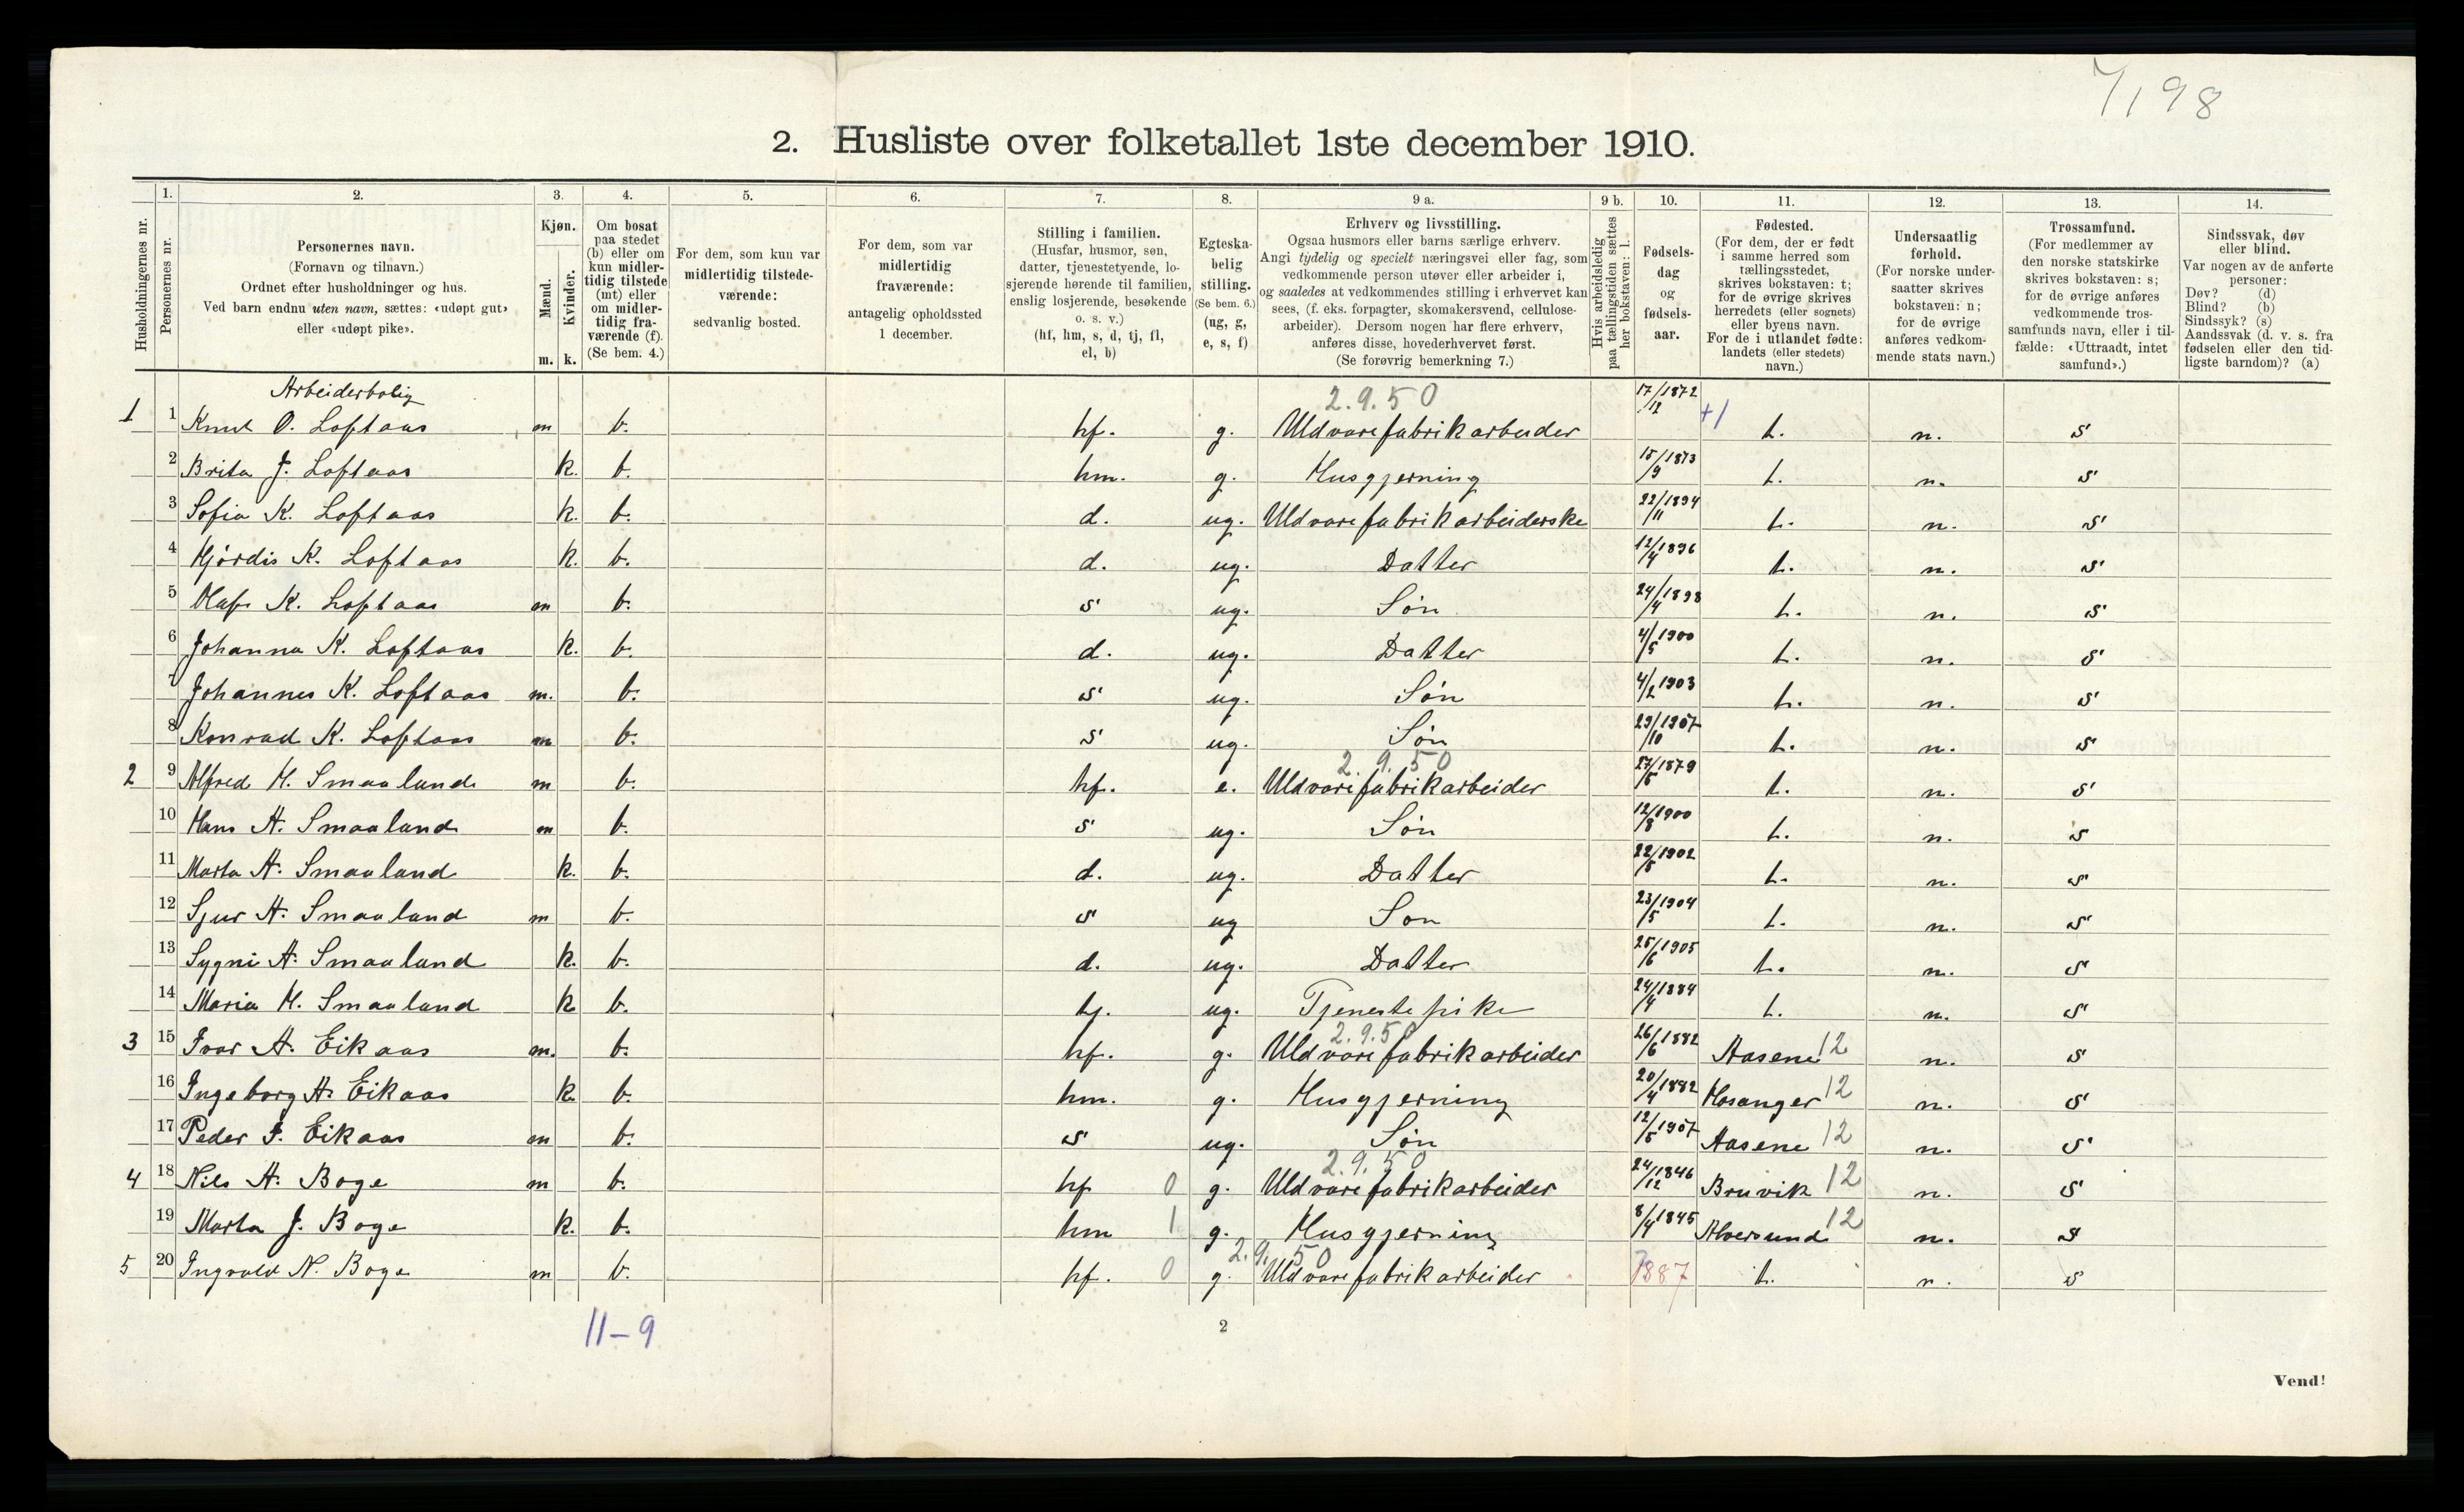 7198
2. Husliste over folketallet 1ste december 1910.
Husholdningernes nr.
1. Personernes nr.
2. Personernes navn. (Fornavn og tilnavn.) Ordnet efter husholdninger og hus. Ved barn endnu uten navn, sættes: «udøpt gut» eller «udøpt pike».
3. Kjøn. Mænd. m. Kvinder. k.
4. Om bosat paa stedet (b) eller om kun midlertidig tilstede (mt) eller om midlertidig fraværende (f). (Se bem. 4.)
5. For dem, som kun var midlertidig tilstedeværende: sedvanlig bosted.
6. For dem, som var midlertidig fraværende: antagelig opholdssted 1 december.
7. Stilling i familien. (Husfar, husmor, søn, datter, tjenestetyende, losjerende hørende til familien, enslig losjerende, besøkende o. s. v.) (hf, hm, s, d, tj, fl, el, b)
8. Egteskabelig stilling. (Se bem. 6.) (ug, g, e, s, f)
9 a. Erhverv og livsstilling. Ogsaa husmors eller barns særlige erhverv. Angi tydelig og specielt næringsvei eller fag, som vedkommende person utøver eller arbeider i, og saaledes at vedkommendes stilling i erhvervet kan sees, (f. eks. forpagter, skomakersvend, cellulosearbeider). Dersom nogen har flere erhverv, anføres disse, hovederhvervet først. (Se forøvrig bemerkning 7.)
9 b. Hvis arbeidsledig paa tællingstiden sættes her bokstaven: l.
10. Fødselsdag og fødselsaar.
11. Fødested. (For dem, der er født i samme herred som tællingsstedet, skrives bokstaven: t; for de øvrige skrives herredets (eller sognets) eller byens navn. For de i utlandet fødte: landets (eller stedets) navn.)
12. Undersaatlig forhold. (For norske undersaatter skrives bokstaven: n; for de øvrige anføres vedkommende stats navn.)
13. Trossamfund. (For medlemmer av den norske statskirke skrives bokstaven: s; for de øvrige anføres vedkommende trossamfunds navn, eller i tilfælde: «Uttraadt, intet samfund».)
14. Sindssvak, døv eller blind. Var nogen av de anførte personer: Døv? (d) Blind? (b) Sindssyk? (s) Aandssvak (d. v. s. fra fødselen eller den tidligste barndom)? (a)
Arbeiderbolig 2.9.50
1 1 Knut O. Loftaas m b. hf. g. Uldvarefabrikarbeider 17/12 1872 +1 t. n. s
2 Brita J. Loftaas k. b. hm. g. Husgjerning 15/9 1873 t. n. s
3 Sofia K. Loftaas k. b. d. ug. Uldvarefabrikarbeiderske 22/11 1894 t. n. s
4 Hjördis K. Loftaas k. b. d. ug. Datter 12/4 1896 t. n. s
5 Olaf K. Loftaas m b. s ug. Søn 24/4 1898 t. n. s
6 Johanna K. Loftaas k. b. d. ug. Datter 4/5 1900 t. n. s
7 Johannes K. Loftaas m. b. s ug. Søn 4/2 1903 t. n. s
8 Konrad K. Loftaas m b. s ug. Søn 29/10 1907 t. n. s
2.9.50
2 9 Alfred H. Smaaland m b. hf. e. Uldvarefabrikarbeider 27/5 1879 t. n. s
10 Hans A. Smaaland m b. s ug. Søn 12/8 1900 t. n. s
11 Marta A. Smaaland k. b. d. ug. Datter 22/5 1902 t. n. s
12 Sjur A. Smaaland m b. s ug Søn 23/5 1904 t. n. s
13 Sygni A. Smaaland k. b. d. ug. Datter 25/6 1905 t. n. s
14 Maria H. Smaaland k b. tj. ug. Tjenestepike 24/4 1884 t. n. s
2.9.50
3 15 Ivar A. Eikaas m. b. hf. g. Uldvarefabrikarbeider 26/6 1882 Aasene 12 n. s
16 Ingeborg A. Eikaas k. b. hm. g. Husgjerning 20/4 1882 Hosanger 12 n. s
17 Peder I. Eikaas m b. s ug. Søn 12/5 1907 Aasene 12 n. s
2.9.50
4 18 Nils A. Boge m b. hf 0 g. Uldvarefabrikarbeider 24/12 1846 Bruvik 12 n. s
19 Marta J. Boge k. b. hm 1 g. Husgjerning 8/4 1845 Alversund 12 n. s
2.9.50
5 20 Ingvald N. Boge m b. hf. 0 g. Uldvarefabrikarbeider 1887 t. n. s
11-9
2
Vend!